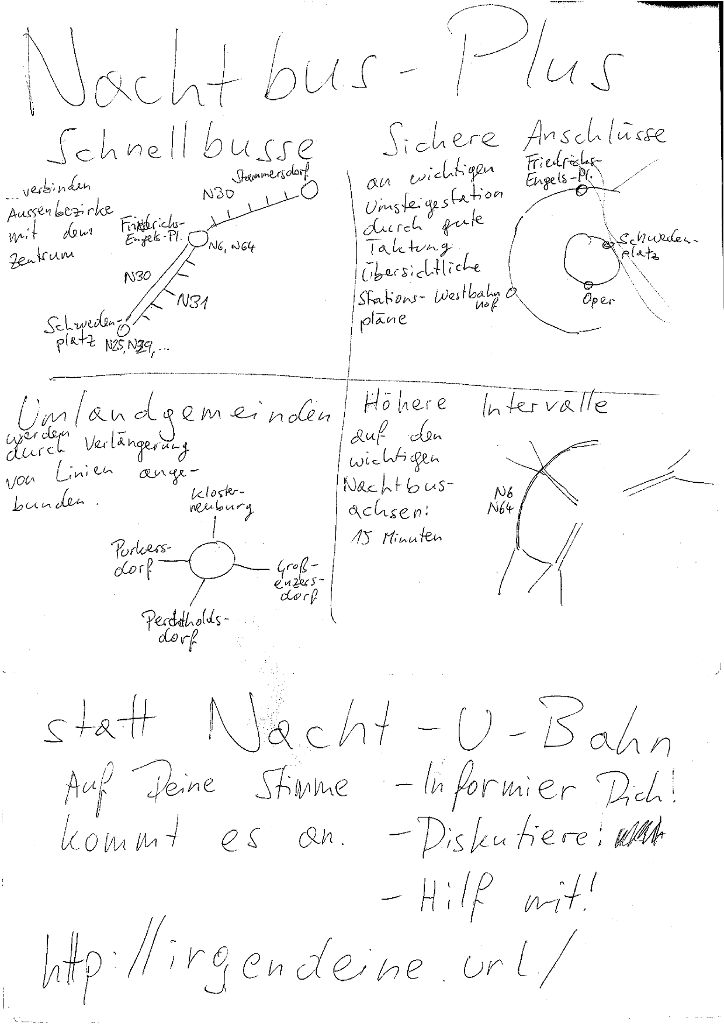 Nachtbus-Plus
Schnellbusse
...verbinden
Aussenbezirke
mit dem
Zentrum
N30
Stammersdorf
Friedrichs-
Engels-Pl.
N6, N64
N30
N31
Schweden-
platz
N25, N29, ...
Sichere Anschlüsse
an wichtigen
Umsteigestation
durch gute
Taktung
Übersichtliche
Stations-
pläne
Friedrichs-
Engels-Pl.
Schweden-
platz
Oper
Westbahn
hof
Umlandgemeinden
werden
durch Verlängerung
von Linien ange-
bunden.
Kloster-
neuburg
Purkers-
dorf
Groß-
enzers-
dorf
Perchtholds-
dorf
Höhere Intervalle
auf den
wichtigen
Nachtbus-
achsen:
15 Minuten
N6
N64
statt Nacht-U-Bahn
Auf Deine Stimme
kommt es an.
- Informier Dich!
- Diskutiere!
- Hilf mit!
http://irgendeine.url/